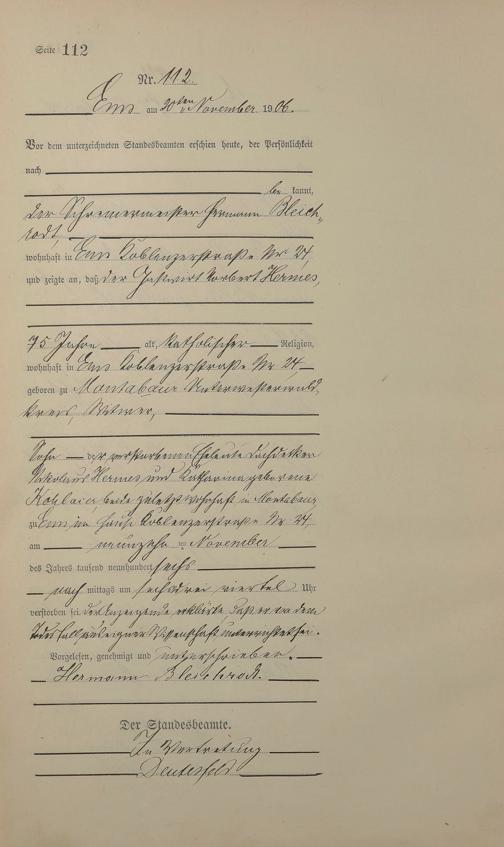 Seite 112
Nr. 112.
Ems am 20ten November 1906.
Vor dem unterzeichneten Standesbeamten erschien heute, der Persönlichkeit
nach
be kannt,
der Schreinermeister Hermann Bleich-
rodt,
wohnhaft in Ems Koblenzerstraße Nr. 24,
und zeigte an, daß der Gastwirt Norbert Hermes,
75 Jahre alt, katholischer Religion,
wohnhaft in Ems Koblenzerstraße Nr. 24,
geboren zu Montabaur Unterwesterwald-
kreis, Witwer,
Sohn der verstorbenen Eheleute Dachdecker
Nikolaus Hermes und Katharina geborene
beide zuletzt wohnhaft in Montabaur
zu Ems, im Hause Koblenzerstraße Nr. 24,
am neunzehn ten November
des Jahres tausend neunhundert sechs
nach mittags um sechs drei viertel Uhr
verstorben sei. Der Anzeigende erklärte, daß er von dem
Todesfall aus eigener Wissenschaft unterrichtet sei.
Vorgelesen, genehmigt und unterschrieben.
Hermann Bleichrodt.
Der Standesbeamte.
In Vertretung